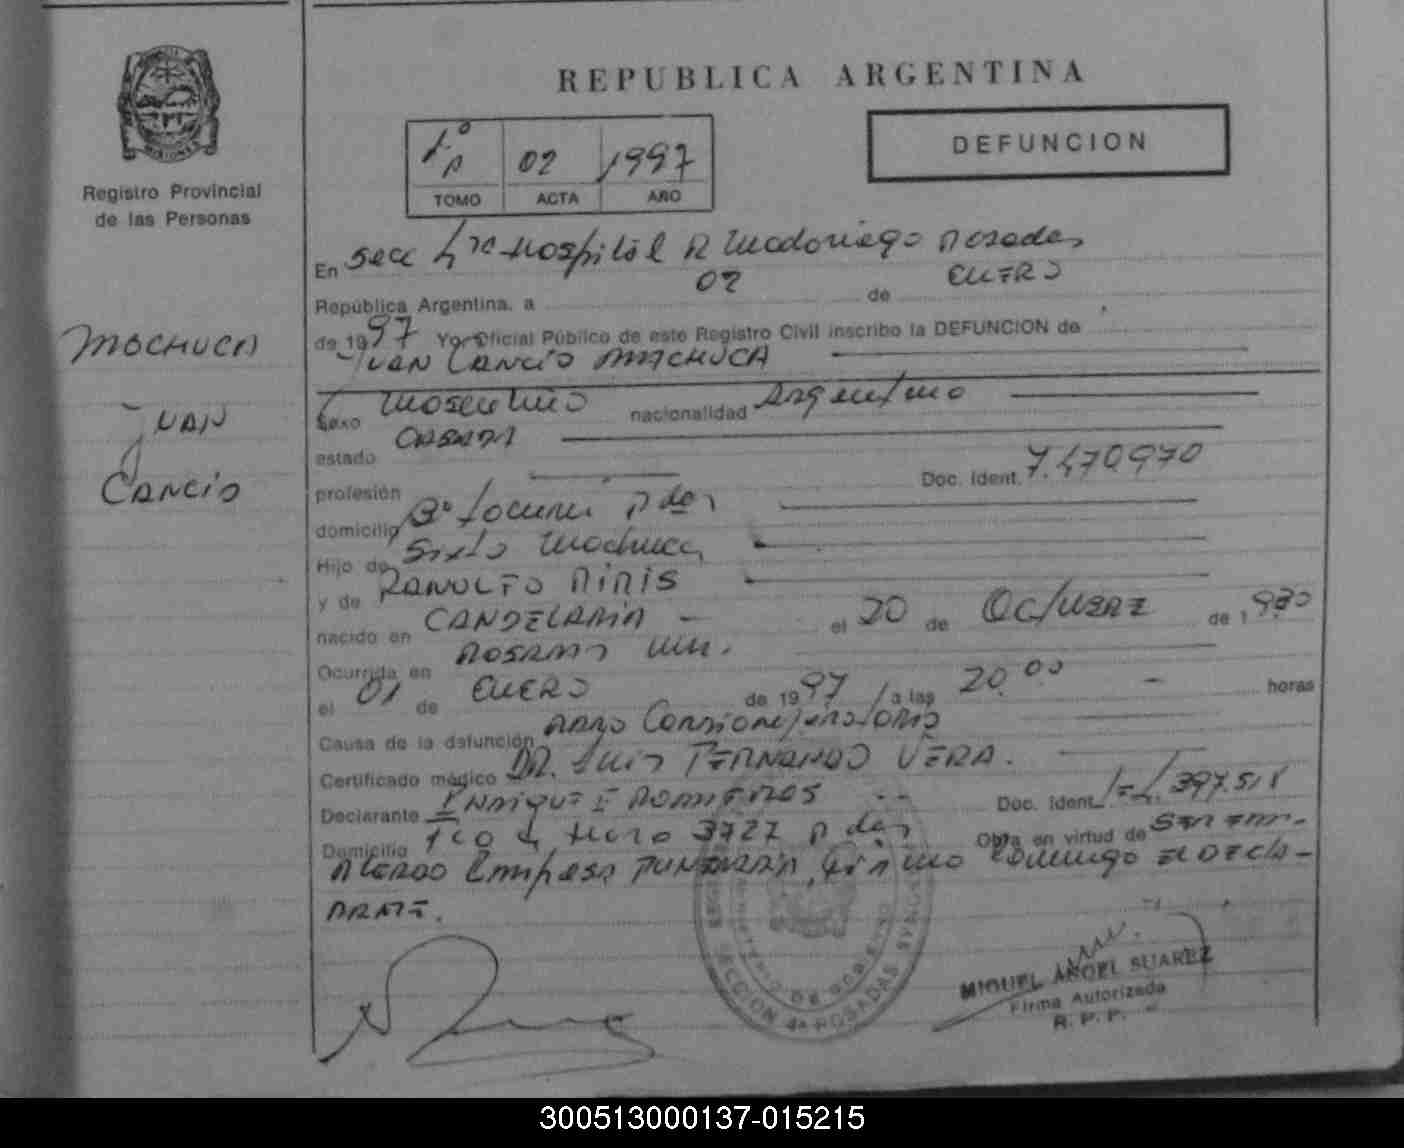 REPUBLICA ARGENTINA
1º 02 1997
TOMO ACTA AÑO
DEFUNCION
Registro Provincial
de las Personas
MISIONES
En Secc 4ta Hospital R Madariaga Posadas
República Argentina, a 02 de ENERO
de 1997 Yo, Oficial Público de este Registro Civil inscribo la DEFUNCION de
JUAN CANCIO MACHUCA
MACHUCA
JUAN
CANCIO
sexo Masculino nacionalidad Argentino
estado CASADO
profesión Doc. Ident. 7.470970
domicilio Bº Pdas
Hijo de Sixto Machuca
y de
nacido en CANDELARIA el 20 de OCTUBRE de 1930
Ocurrida en POSADAS
el 01 de ENERO de 1997 a las 20.00 horas
Causa de la defunción PARO CARDIORESPIRATORIO
Certificado médico DR. LUIS FERNANDO VERA.
Declarante ENRIQUE Doc. Ident.
Domicilio 3727 Pdas Obra en virtud de
Empresa FUNERARIA EL DECLA-
RANTE.
SECCION 4ª POSADAS
MINISTERIO DE GOBIERNO
MIGUEL ANGEL SUAREZ
Firma Autorizada
R. P. P.
300513000137-015215